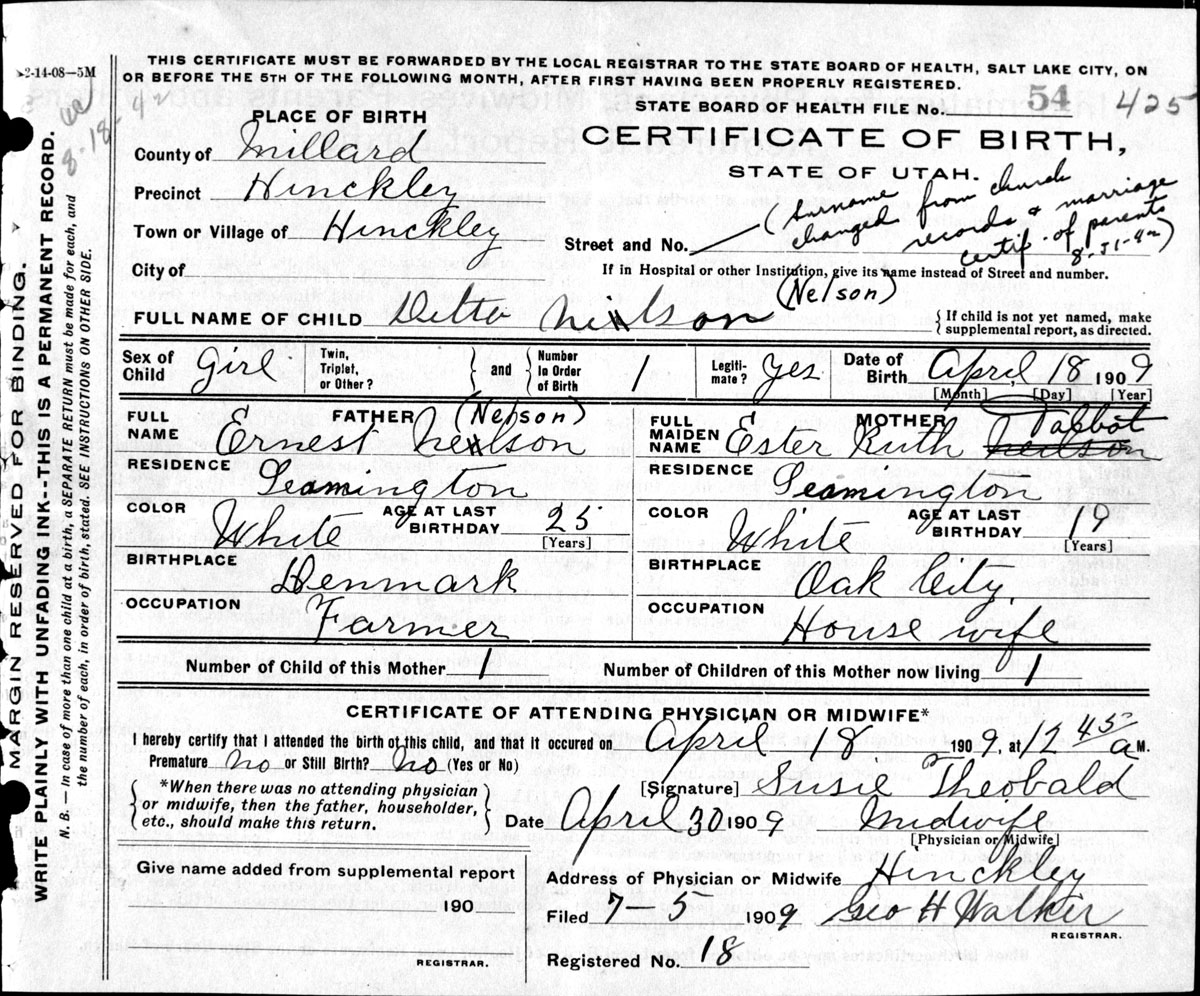 2-14-08—5M
THIS CERTIFICATE MUST BE FORWARDED BY THE LOCAL REGISTRAR TO THE STATE BOARD OF HEALTH, SALT LAKE CITY, ON
OR BEFORE THE 5TH OF THE FOLLOWING MONTH, AFTER FIRST HAVING BEEN PROPERLY REGISTERED.
STATE BOARD OF HEALTH FILE No. 54 425
8-18-42
MARGIN RESERVED FOR BINDING.
WRITE PLAINLY WITH UNFADING INK--THIS IS A PERMANENT RECORD.
N. B. — In case of more than one child at a birth, a SEPARATE RETURN must be made for each, and
the number of each, in order of birth, stated. SEE INSTRUCTIONS ON OTHER SIDE.
PLACE OF BIRTH
CERTIFICATE OF BIRTH,
STATE OF UTAH.
County of Millard
Precinct Hinckley
Town or Village of Hinckley
City of
Street and No.
(Surname
changed from church
records & marriage
certif. of parents
8-31-42)
If in Hospital or other Institution, give its name instead of Street and number.
(Nelson)
FULL NAME OF CHILD Detta Neilson
{ If child is not yet named, make
supplemental report, as directed.
Sex of Child Girl Twin, Triplet, or Other? } and { Number In Order of Birth 1 Legiti-mate? Yes Date of Birth April, 18 1909
[Month] [Day] [Year]
FULL NAME FATHER (Nelson)
Ernest Neilson
RESIDENCE Leamington
COLOR White AGE AT LAST BIRTHDAY 25
[Years]
BIRTHPLACE Denmark
OCCUPATION Farmer
FULL MAIDEN NAME MOTHER Talbot
Ester Ruth Neilson
RESIDENCE Leamington
COLOR White AGE AT LAST BIRTHDAY 19
[Years]
BIRTHPLACE Oak City.
OCCUPATION House wife
Number of Child of this Mother 1 Number of Children of this Mother now living 1
CERTIFICATE OF ATTENDING PHYSICIAN OR MIDWIFE*
I hereby certify that I attended the birth of this child, and that it occured on April 18 1909, at 12 45 a M.
Premature No or Still Birth? No (Yes or No)
[Signature] Susie Theobald
{ *When there was no attending physician
or midwife, then the father, householder,
etc., should make this return. }
Date April 30 1909 Midwife
[Physician or Midwife]
Give name added from supplemental report
190
REGISTRAR.
Address of Physician or Midwife Hinckley
Filed 7-5 1909 Geo H Walker
REGISTRAR.
Registered No. 18